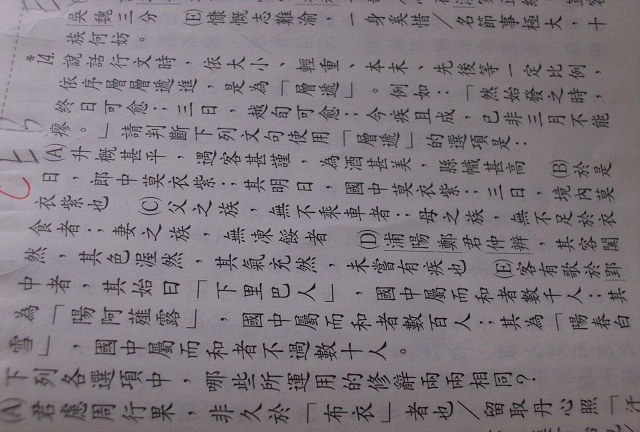 吳魏三分 (E)慷慨志難渝，一身奚惜／名節事極大，十
族何妨。
*14.說話行文時，依大小、輕重、本末、先後等一定比例，
依序層層遞進，是為「層遞」。例如：「然始發之時，
終日可愈；三日，越旬可愈；今疾且成，已非三月不能
瘳。」請判斷下列文句使用「層遞」的選項是：
(A)升概甚平，遇客甚謹，為酒甚美，縣幟甚高 (B)於是
日，郎中莫衣紫；其明日，國中莫衣紫；三日，境內莫
衣紫也 (C)父之族，無不乘車者；母之族，無不足於衣
食者；妻之族，無凍餒者 (D)浦陽鄭君仲辨，其容闐
然，其色渥然，其氣充然，未嘗有疾也 (E)客有歌於郢
中者，其始曰「下里巴人」，國中屬而和者數千人；其
為「陽阿薤露」，國中屬而和者數百人；其為「陽春白
雪」，國中屬而和者不過數十人。
下列各選項中，哪些所運用的修辭兩兩相同？
(A)君慮周行果，非久於「布衣」者也／留取丹心照「汗